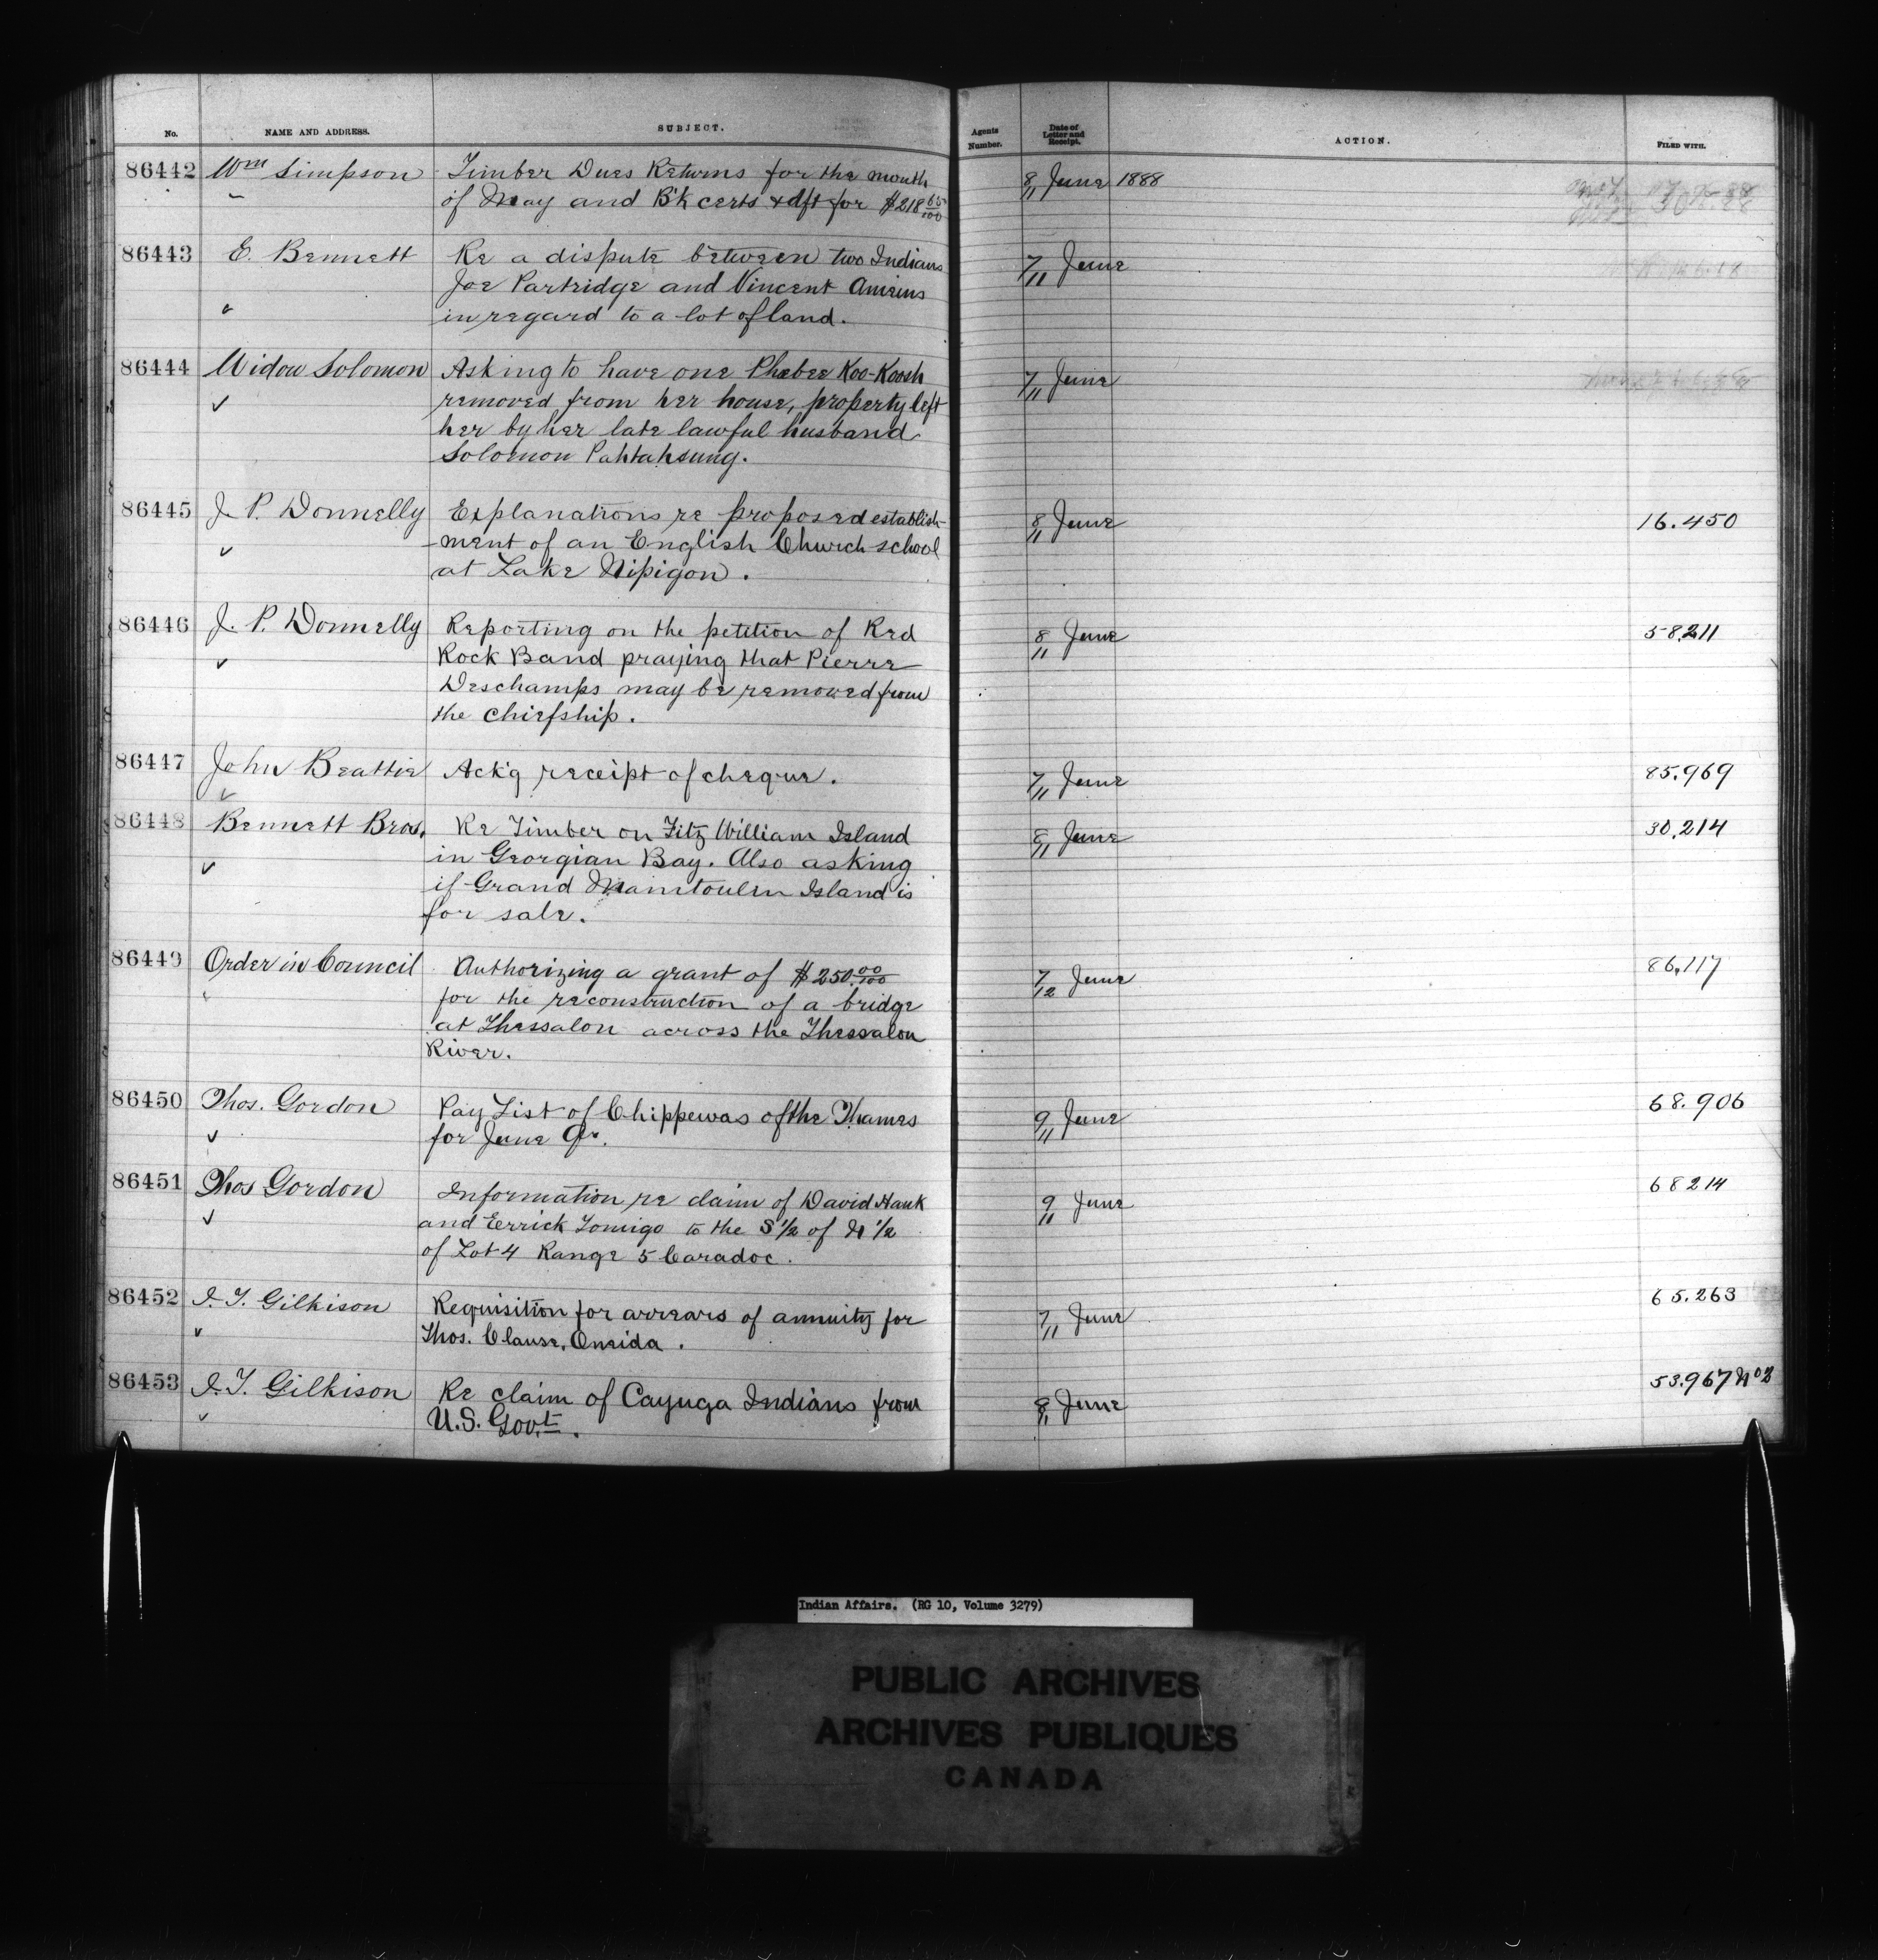 No. NAME AND ADDRESS. SUBJECT. Agents Number. Date of Letter and Receipt. ACTION. FILED WITH.
86442 Wm Simpson Timber Dues Returns for the month 8/11 June 1888
of May and B'k certs & dft for $218 65/100
86443 E. Bennett Re a dispute between two Indians 7/11 June
Joe Partridge and Vincent
in regard to a lot of land.
86444 Widow Solomon Asking to have one Phebee Koo-Koosh 7/11 June
removed from her house, property left
her by her late lawful husband
Solomon Pahtahsung.
86445 J. P. Donnelly Explanations re proposed establish- 8/11 June 16.450
-ment of an English Church school
at Lake Nipigon.
86446 J. P. Donnelly Reporting on the petition of Red 8/11 June 58.211
Rock Band praying that Pierre
Deschamps may be removed from
the chiefship.
86447 John Beattie Ack'g receipt of cheque. 7/11 June 85.969
86448 Bennett Bros. Re Timber on Fitz William Island 8/11 June 30,214
in Georgian Bay. Also asking
if Grand Manitoulin Island is
for sale.
86449 Order in Council Authorizing a grant of $250.00/100 7/12 June 86,117
for the reconstruction of a bridge
at Thessalon across the Thessalon
River.
86450 Thos. Gordon Pay List of Chippewas of the Thames 9/11 June 68.906
for June Qr.
86451 Thos Gordon Information re claim of David Hank 9/11 June 68214
and Errick Tomigo to the S 1/2 of N 1/2
of Lot 4 Range 5 Caradoc.
86452 J. T. Gilkison Requisition for arrears of annuity for 7/11 June 65.263
Thos. Clause, Oneida.
86453 J. T. Gilkison Re claim of Cayuga Indians from 8/11 June 53.967 No 2
U.S. Govt.
Indian Affairs. (RG 10, Volume 3279)
PUBLIC ARCHIVES
ARCHIVES PUBLIQUES
CANADA